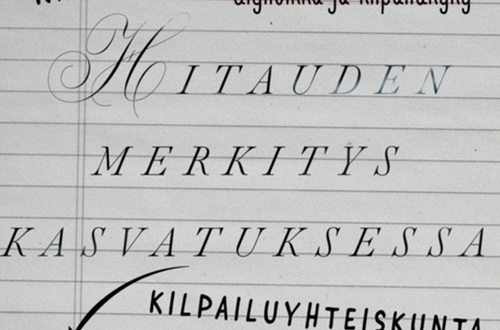 ja kilpailukyky
HITAUDEN
MERKITYS
KASVATUKSESSA
KILPAILUYHTEISKUNTA